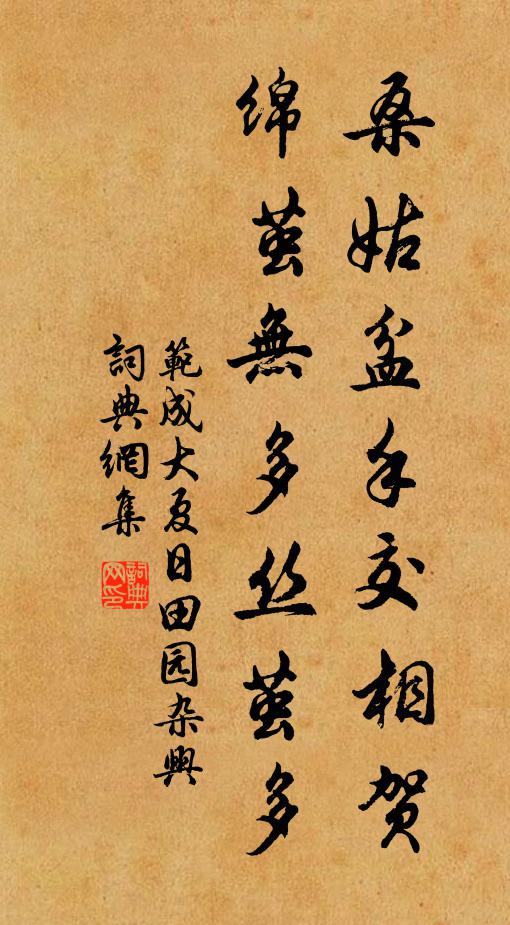 桑姑盆手交相贺
绵茧無多丝茧多
範成大夏日田园杂興
詞典網集
詞典網印